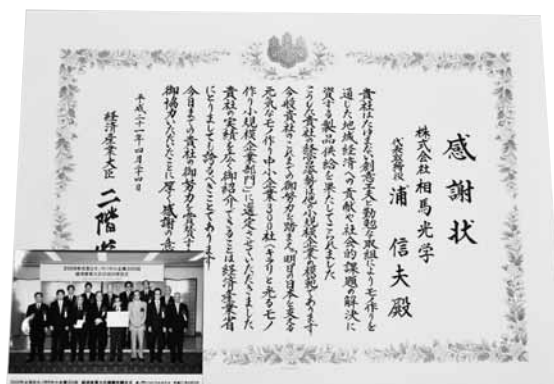 感謝状
株式会社 相馬光学
代表取締役 浦 信夫 殿
貴社はたゆまない創意工夫と勤勉な取組によりモノ作りを
通した地域経済への貢献や社会的課題の解決に
資する製品供給を果たしてこられました
こうした貴社の経営姿勢は小規模企業の模範であります
今般貴社のこれまでの御努力を踏まえ「明日の日本を支える
元気なモノ作り中小企業300社(キラリと光るモノ
作り小規模企業部門)」に選定させていただきました
貴社の実績を広く御紹介できることは経済産業省
にとりましても誇るべきことであります
今日までの貴社の御努力を賞賛す
御協力いただいたことに厚く感謝の意
平成二十一年四月二十四日
経済産業大臣 二階